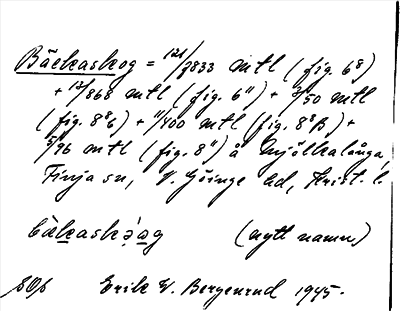 Bäckaskog = 121/7833 mtl (fig. 6⁸)
+ 17/868 mtl (fig. 6¹¹) + 3/50 mtl
(fig. 8⁸6) + 11/400 mtl (fig. 8⁸β) +
5/96 mtl (fig. 8¹¹) å Mjölkalånga,
Finja sn, V. Göinge hd, Krist. l.
bäkaskåag (nytt namn)
Erik W. Bergenrud 1945.